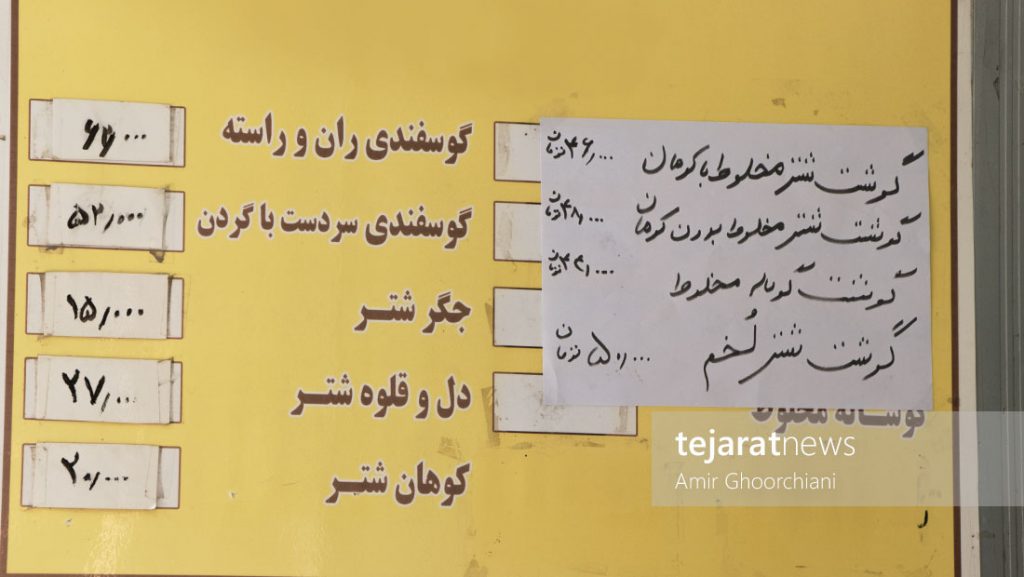 گوشت شتر مخلوط با کوهان ۴۶,۰۰۰ تومان
گوشت شتر مخلوط بدون کوهان ۴۸,۰۰۰ تومان
گوشت گوساله مخلوط تومان
گوشت شتر لُخم ۵۰,۰۰۰ تومان
گوساله مخلوط
گوسفندی ران و راسته
گوسفندی سردست با گردن ۵۲,۰۰۰
جگر شتر ۱۵,۰۰۰
دل و قلوه شتر ۲۷,۰۰۰
کوهان شتر ۲۰,۰۰۰
tejaratnews
Amir Ghoorchiani